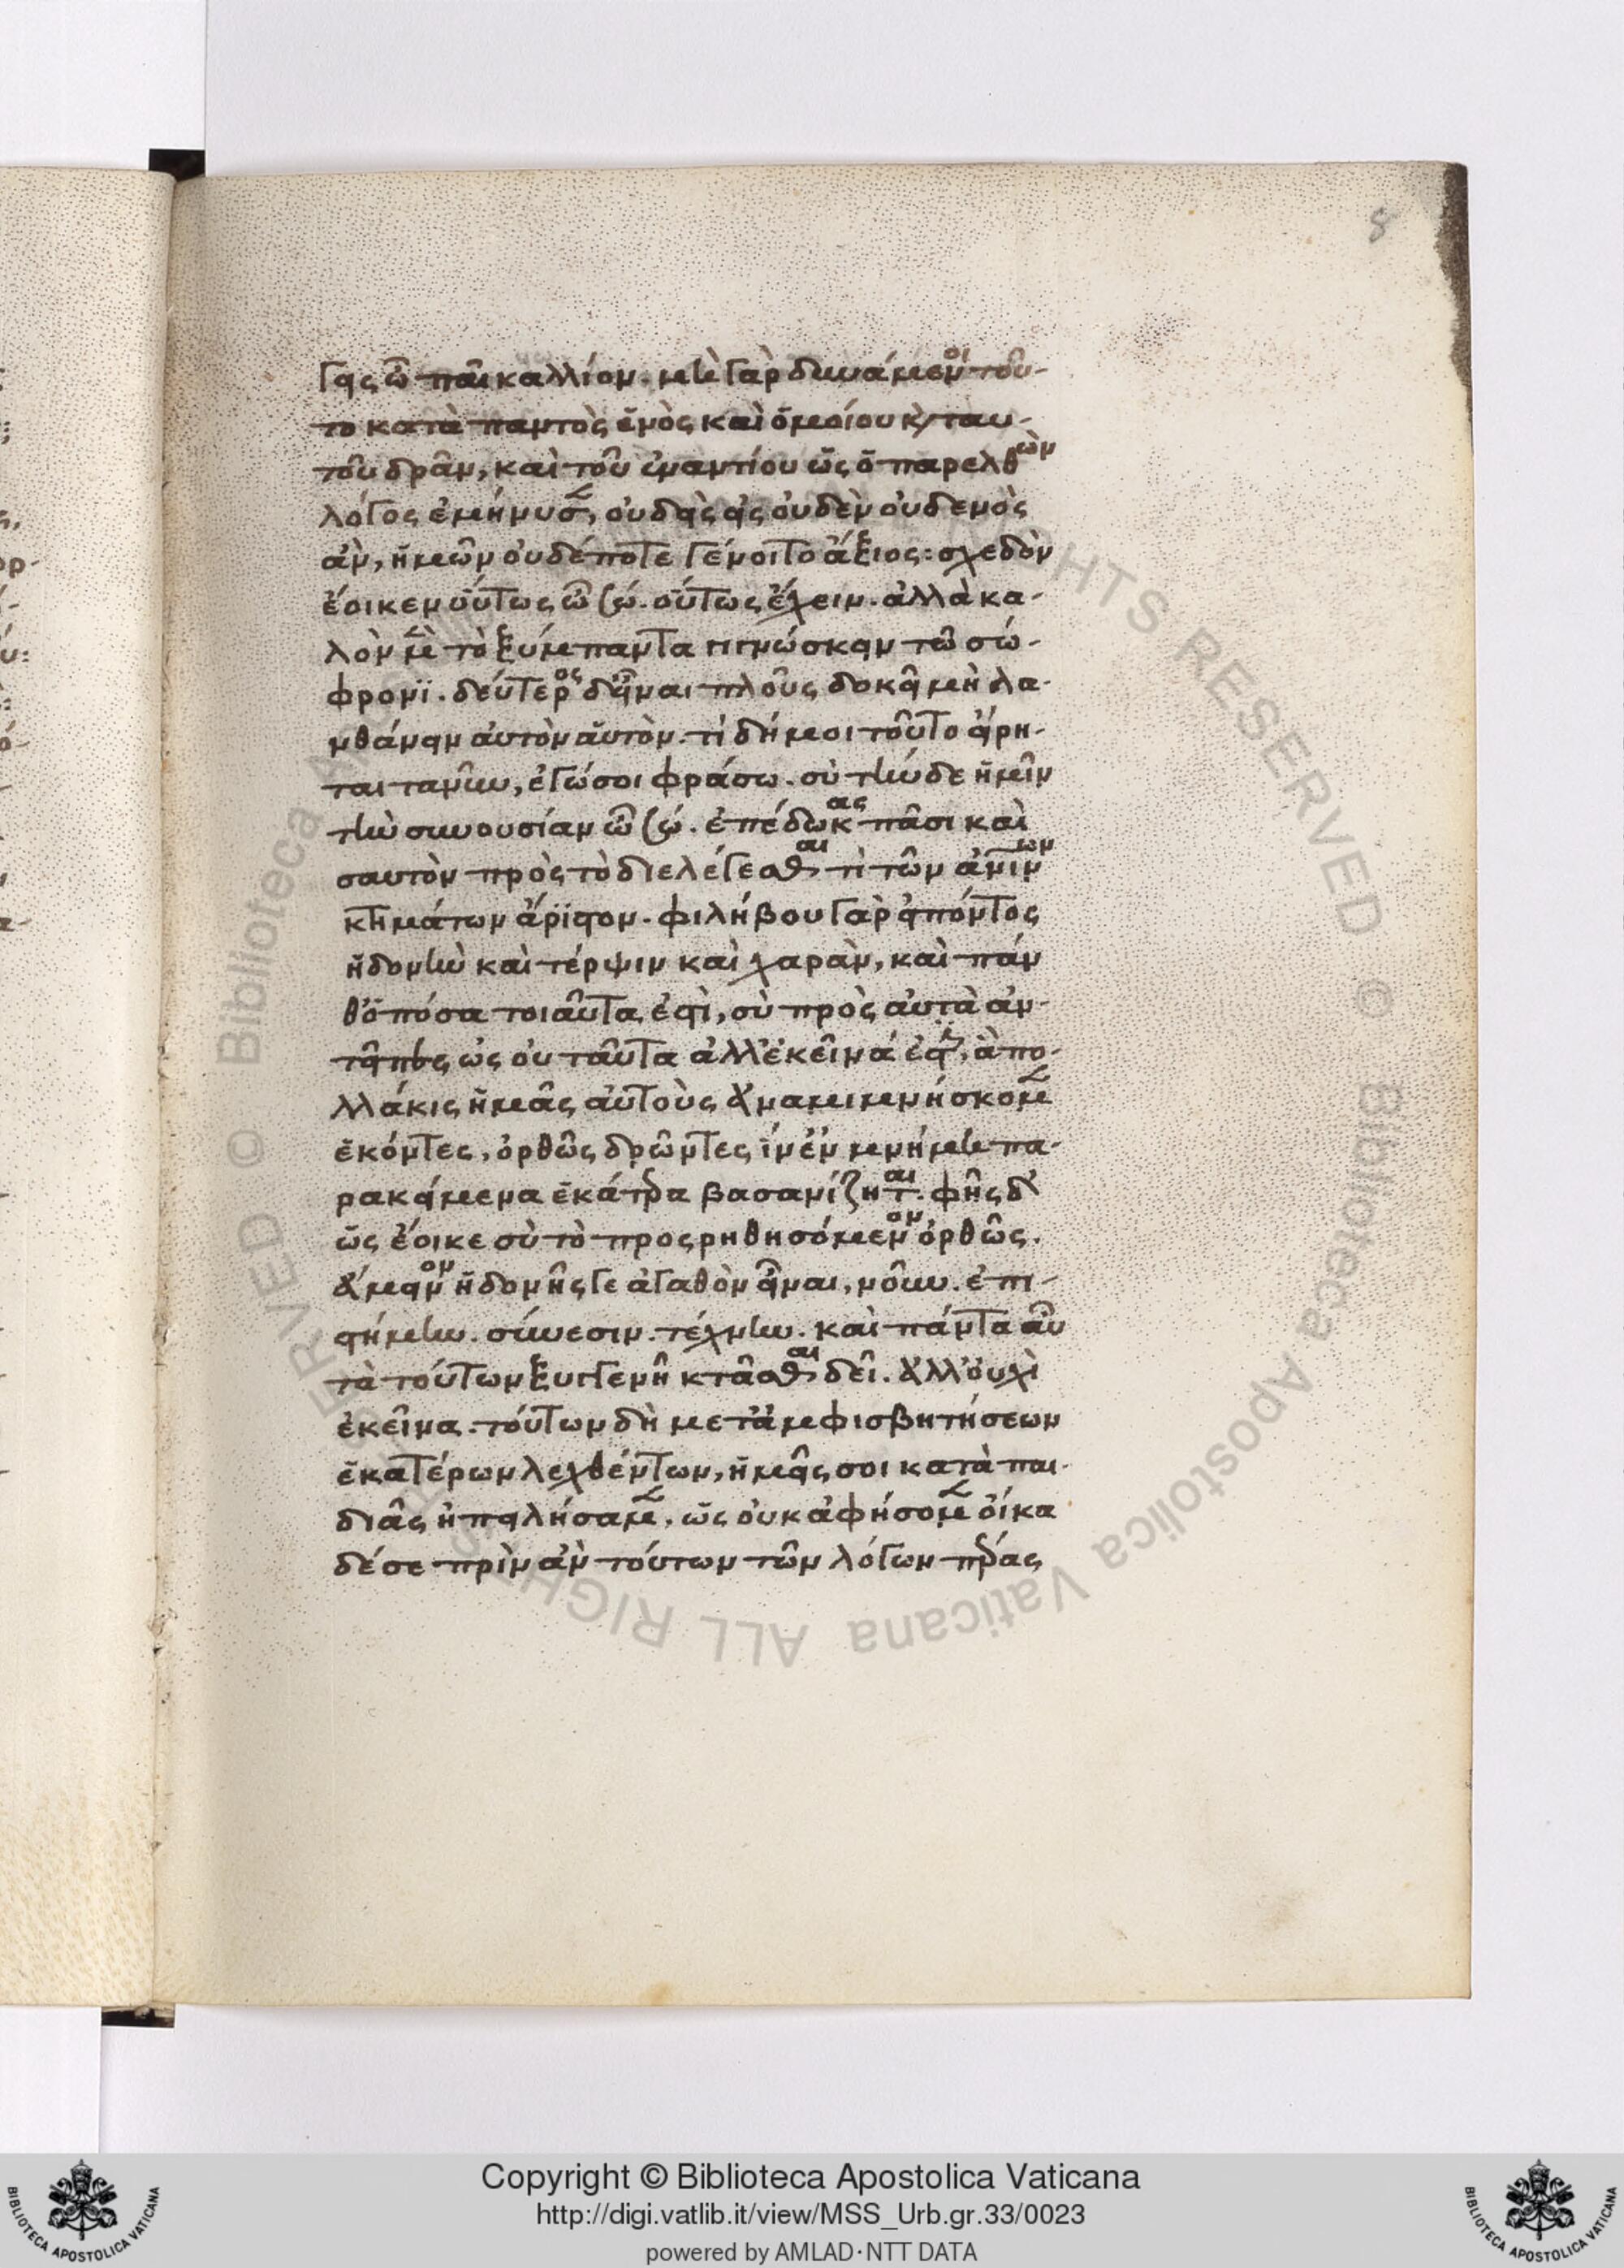 8
γεις ὦ παῖ κάλλιον. μὴ γὰρ δυνάμενοι τοῦ-
το κατὰ παντὸς ἑνὸς καὶ ὁμοίου κ ταυ-
τοῦ δρᾶν, καὶ τοῦ ἐναντίου ὡς ὁ παρελθὼν
λόγος ἐμήνυσεν, οὐδεὶς εἰς οὐδὲν οὐδενὸς
ἂν, ἡμῶν οὐδέποτε γένοιτο ἄξιος: σχεδὸν
ἔοικεν οὕτως ὦ σώ. οὕτως ἔχειν. ἀλλὰ κα-
λὸν μὲν τὸ ξύμπαντα γιγνώσκειν τῶ σώ-
φρονϊ. δεύτερος δ' εἶναι πλοῦς δοκεῖ μὴ λα-
νθάνειν αὐτὸν αὑτὸν. τί δή μοι τοῦτο εἴρη-
ται τανῦν, ἐγώ σοι φράσω. σὺ τήνδε ἡμῖν
τὴν συνουσίαν ὦ σώ. ἐπέδωκας πᾶσι καὶ
σαυτὸν πρὸς τὸ διελέγεσθαι τὶ τῶν ἀνίνων
κτημάτων ἄρϊστον. φιλήβου γὰρ εἰπόντος
ἡδονὴν καὶ τέρψιν καὶ χαρὰν, καὶ πάν
θ' ὁπόσα τοιαῦτα ἐστὶ, σὺ πρὸς αὐτὰ ἀν-
τεῖπες ὡς οὐ ταῦτα ἀλλ' ἐκεῖνά ἐστιν, ἃ πο-
λλάκις ἡμᾶς αὐτοὺς ἀναμιμνήσκομεν
ἑκόντες, ὀρθῶς δρῶντες ἵν' ἐν μνήμη πα-
ρακείμενα ἑκάτερα βασανίζηται. φῂς δ'
ὡς ἔοικε σὺ τὸ προςρηθησόμενον ὀρθῶς.
ἄμεινον ἡδονῆς γε ἀγαθὸν εἶναι, νοῦν. ἐπι-
στήμην. σύνεσιν. τέχνην. καὶ πάντα αὖ
τὰ τούτων ξυγγενῆ κτᾶσθαι δεῖ. ἀλλ' οὐχὶ
ἐκεῖνα. τούτων δὴ μετ' ἀμφισβητήσεων
ἑκατέρων λεχθέντων, ἡμεῖς σοι κατὰ παι-
διᾶς ἠπειλήσαμεν, ὡς οὐκ ἀφήσομεν οἴκα
δέ σε πρὶν ἂν τούτων τῶν λόγων πέρας
Copyright © Biblioteca Apostolica Vaticana
http://digi.vatlib.it/view/MSS_Urb.gr.33/0023
powered by AMLAD·NTT DATA